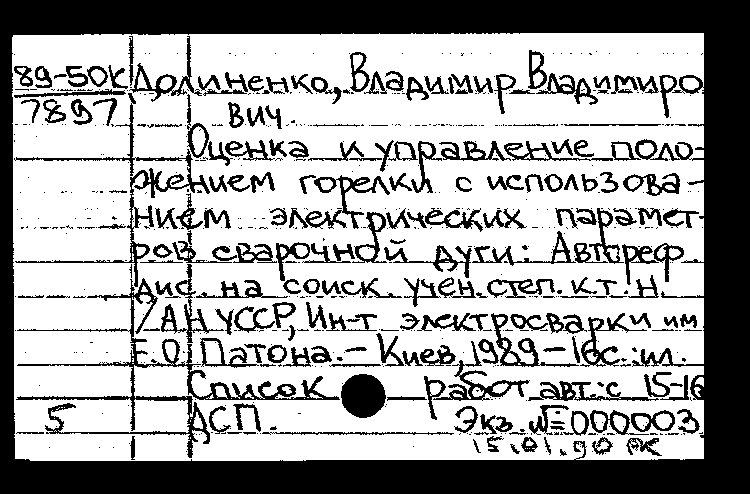 89-50К Долиненко, Владимир Владимиро
7897 вич.
Оценка и управление поло-
жением горелки с использова-
нием электрических парамет-
ров сварочной дуги: Автореф.
дис. на соиск. учен. степ. к.т.н.
/АН УССР, Ин-т электросварки им
Е.О. Патона. - Киев, 1989. - 16с.:ил.
Список работ авт.: с 15-16
5 ДСП. Экз. №000003
15.01.90 РК